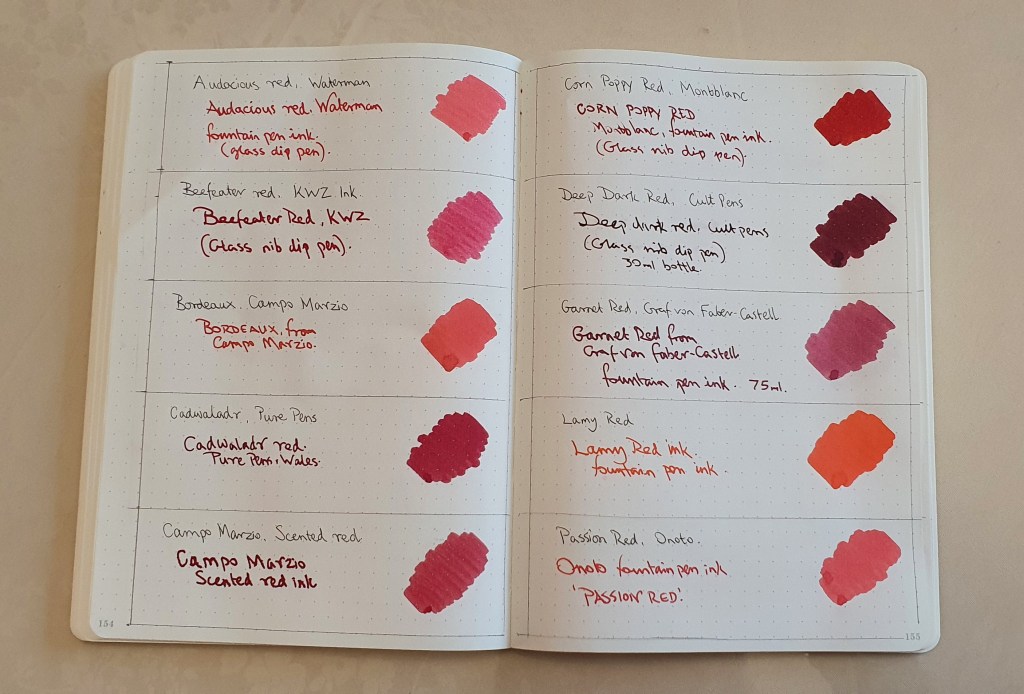 Audacious red, Waterman
Audacious red, Waterman
fountain pen ink.
(glass dip pen).
Beefeater red, KWZ Ink.
Beefeater Red, KWZ
(Glass nib dip pen).
Bordeaux, Campo Marzio
BORDEAUX, from
Campo Marzio.
Cadwaladr, Pure Pens
Cadwaladr red.
Pure Pens, Wales.
Campo Marzio, Scented red
Campo Marzio
Scented red ink
154
Corn Poppy Red, Montblanc
CORN POPPY RED
Montblanc, fountain pen ink.
(Glass nib dip pen).
Deep Dark Red, Cult Pens
Deep dark red, Cult pens
(Glass nib dip pen)
30ml bottle.
Garnet Red, Graf von Faber-Castell
Garnet Red from
Graf von Faber-Castell
fountain pen ink. 75ml.
Lamy Red
Lamy Red ink.
fountain pen ink.
Passion Red, Onoto.
Onoto fountain pen ink
'PASSION RED'.
155